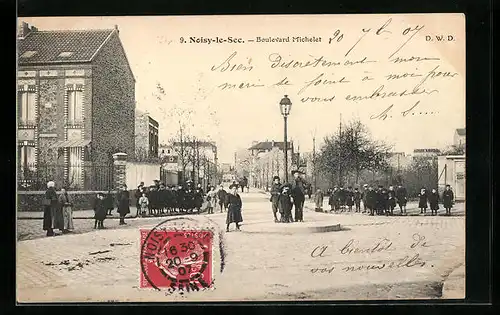 9. Noisy-le-Sec. – Boulevard Michelet
D. W. D.
20 7bre 07
Bien Discretement mon
mari se joint à moi pour
vous embrasser
A bientôt de
vos nouvelles
NOISY
16 30
20 - 9
07
SEINE